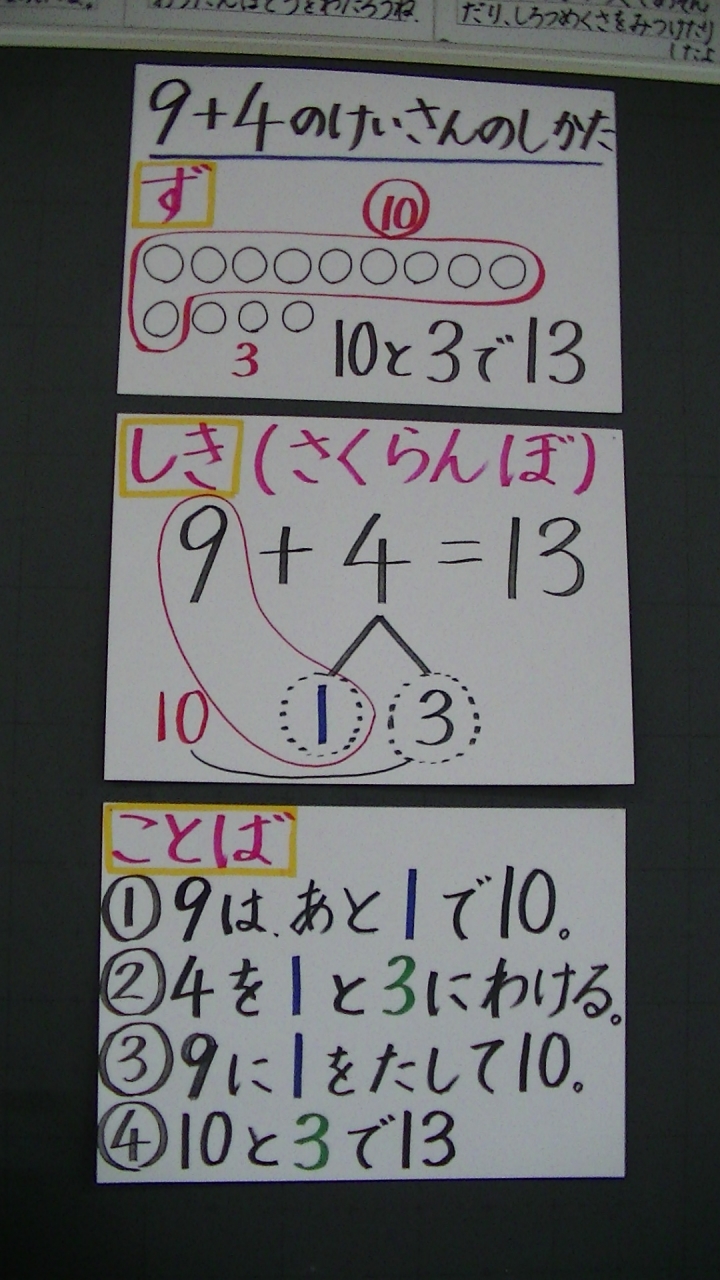 だり、しろつめくさをみつけたり
したよ
9+4のけいさんのしかた
ず
10
3
10と3で13
しき(さくらんぼ)
9+4=13
1 3
10
ことば
①9は、あと1で10。
②4を1と3にわける。
③9に1をたして10。
④10と3で13